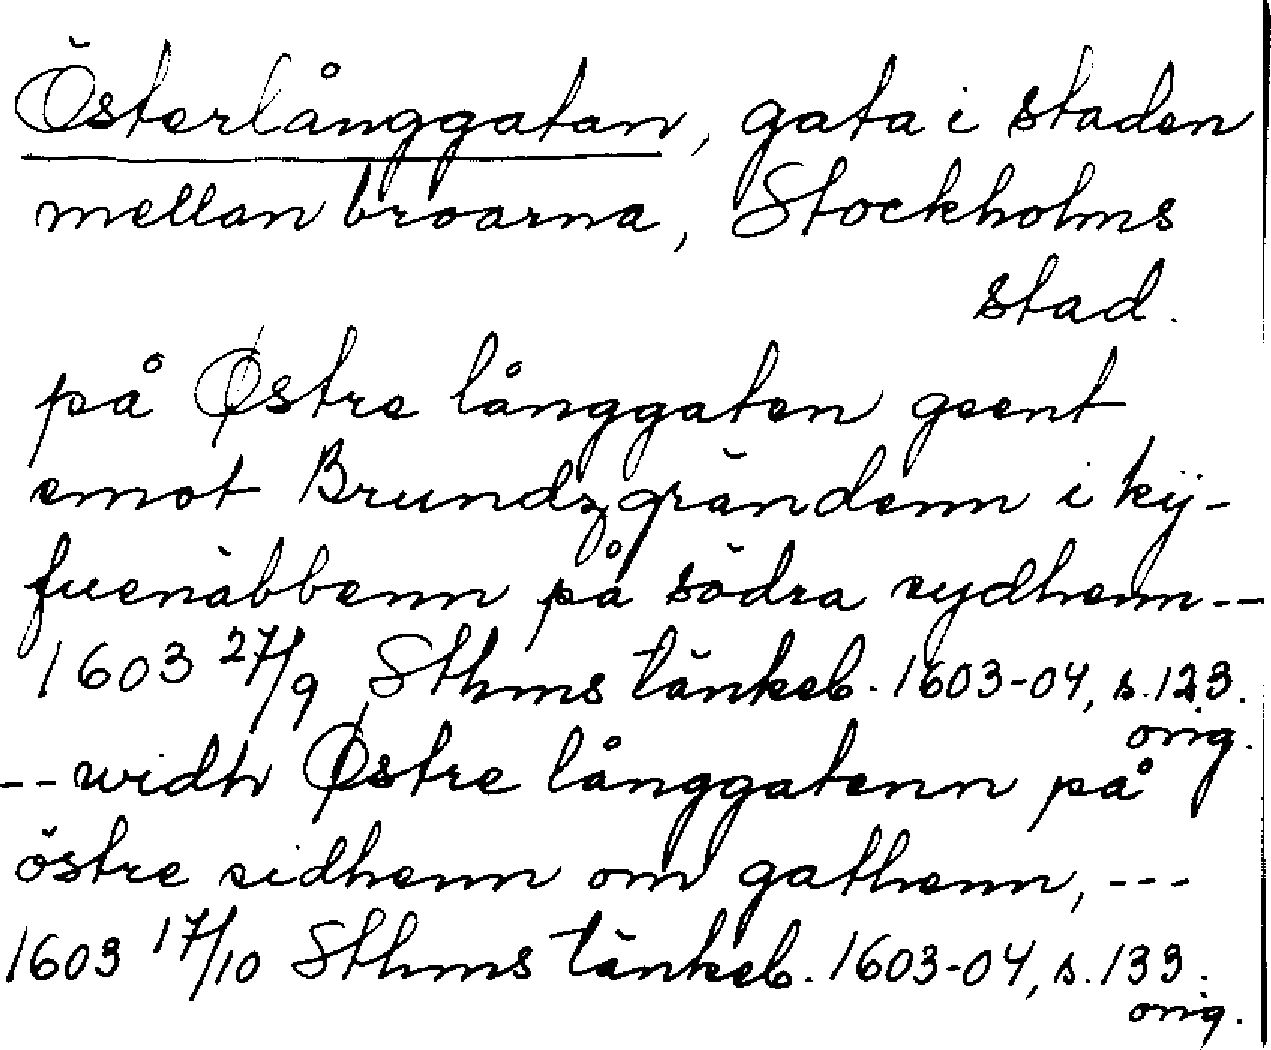 Österlånggatan, gata i staden
mellan broarna, Stockholms
stad.
på Østre långgaten geent
emot Brundzgrändenn i kij-
fuenäbbenn på södra sydhenn--
1603 27/9 Sthms tänkeb. 1603-04, s. 123.
orig.
--widh Østre långgatenn på
östre sidhenn om gathenn, ---
1603 17/10 Sthms tänkeb. 1603-04, s. 133.
orig.